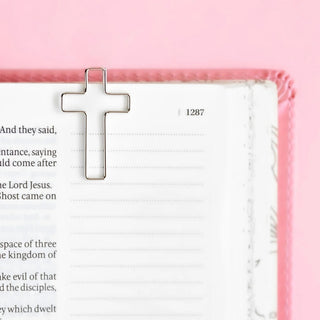 1287
And they said,
entance, saying
uld come after
he Lord Jesus.
Ghost came on
space of three
he kingdom of
ake evil of that
d the disciples,
ey which dwelt